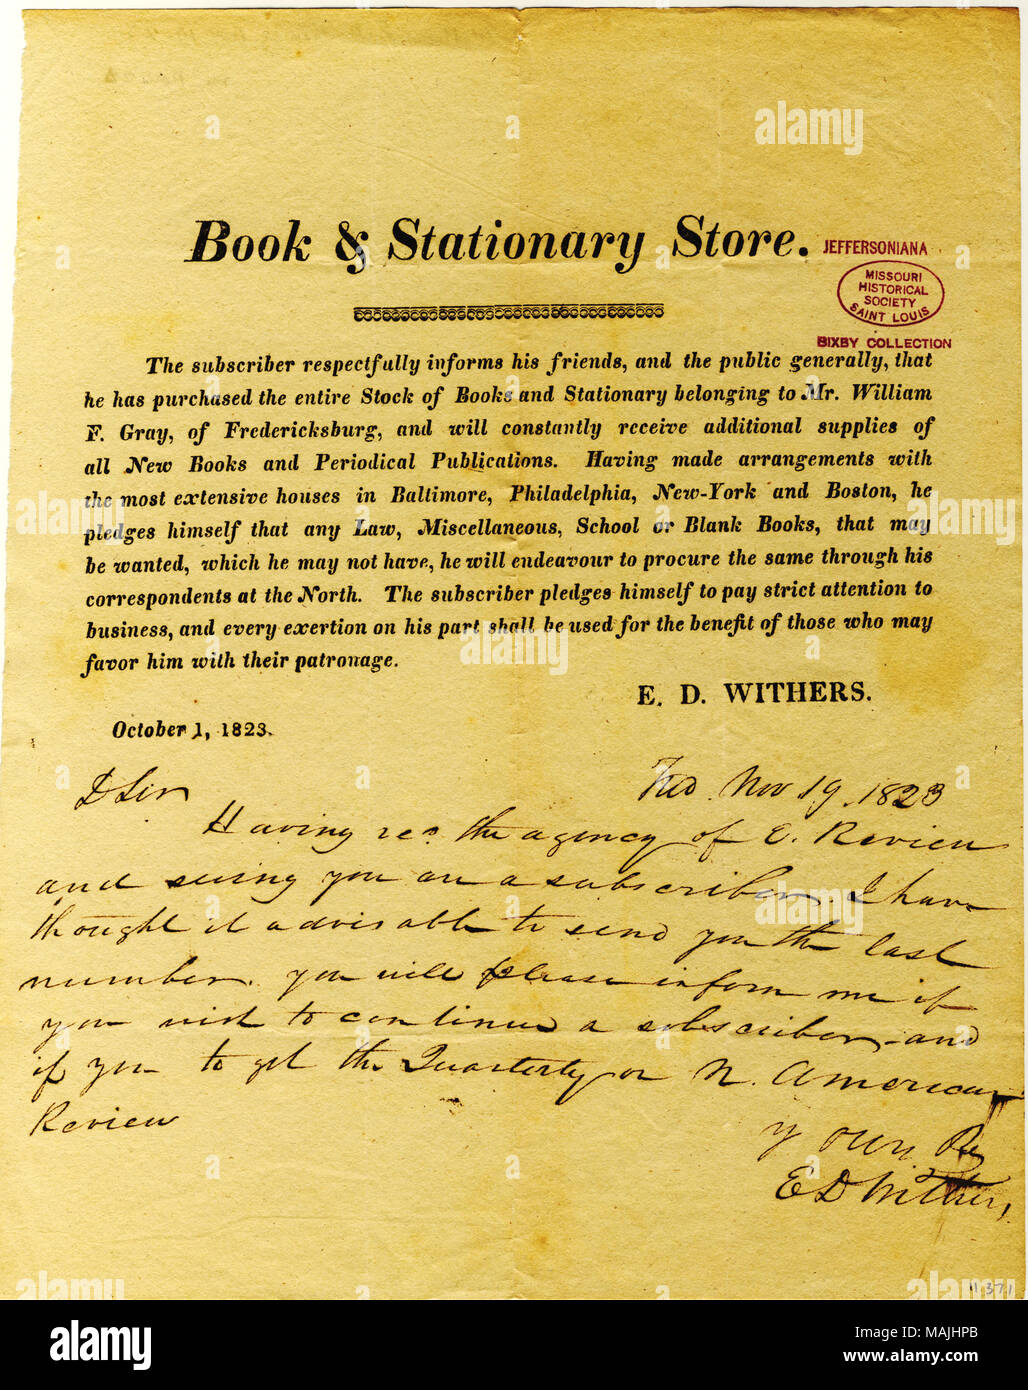 Book & Stationary Store.
JEFFERSONIANA
MISSOURI
HISTORICAL
SOCIETY
SAINT LOUIS
BIXBY COLLECTION
The subscriber respectfully informs his friends, and the public generally, that
he has purchased the entire Stock of Books and Stationary belonging to Mr. William
F. Gray, of Fredericksburg, and will constantly receive additional supplies of
all New Books and Periodical Publications. Having made arrangements with
the most extensive houses in Baltimore, Philadelphia, New-York and Boston, he
pledges himself that any Law, Miscellaneous, School or Blank Books, that may
be wanted, which he may not have, he will endeavour to procure the same through his
correspondents at the North. The subscriber pledges himself to pay strict attention to
business, and every exertion on his part shall be used for the benefit of those who may
favor him with their patronage.
E. D. WITHERS.
October 1, 1823.
D Sir
Fred. Nov 19. 1823
Having rec. the agency of E. Review
and seeing you are a subscriber. I have
thought it advisable to send you the last
number. you will please inform me if
you wish to continue a subscriber, and
if you to get the Quarterly or N. American
Review
yours Re
E D Withers,
11 371
alamy
Image ID: MAJHPB
www.alamy.com